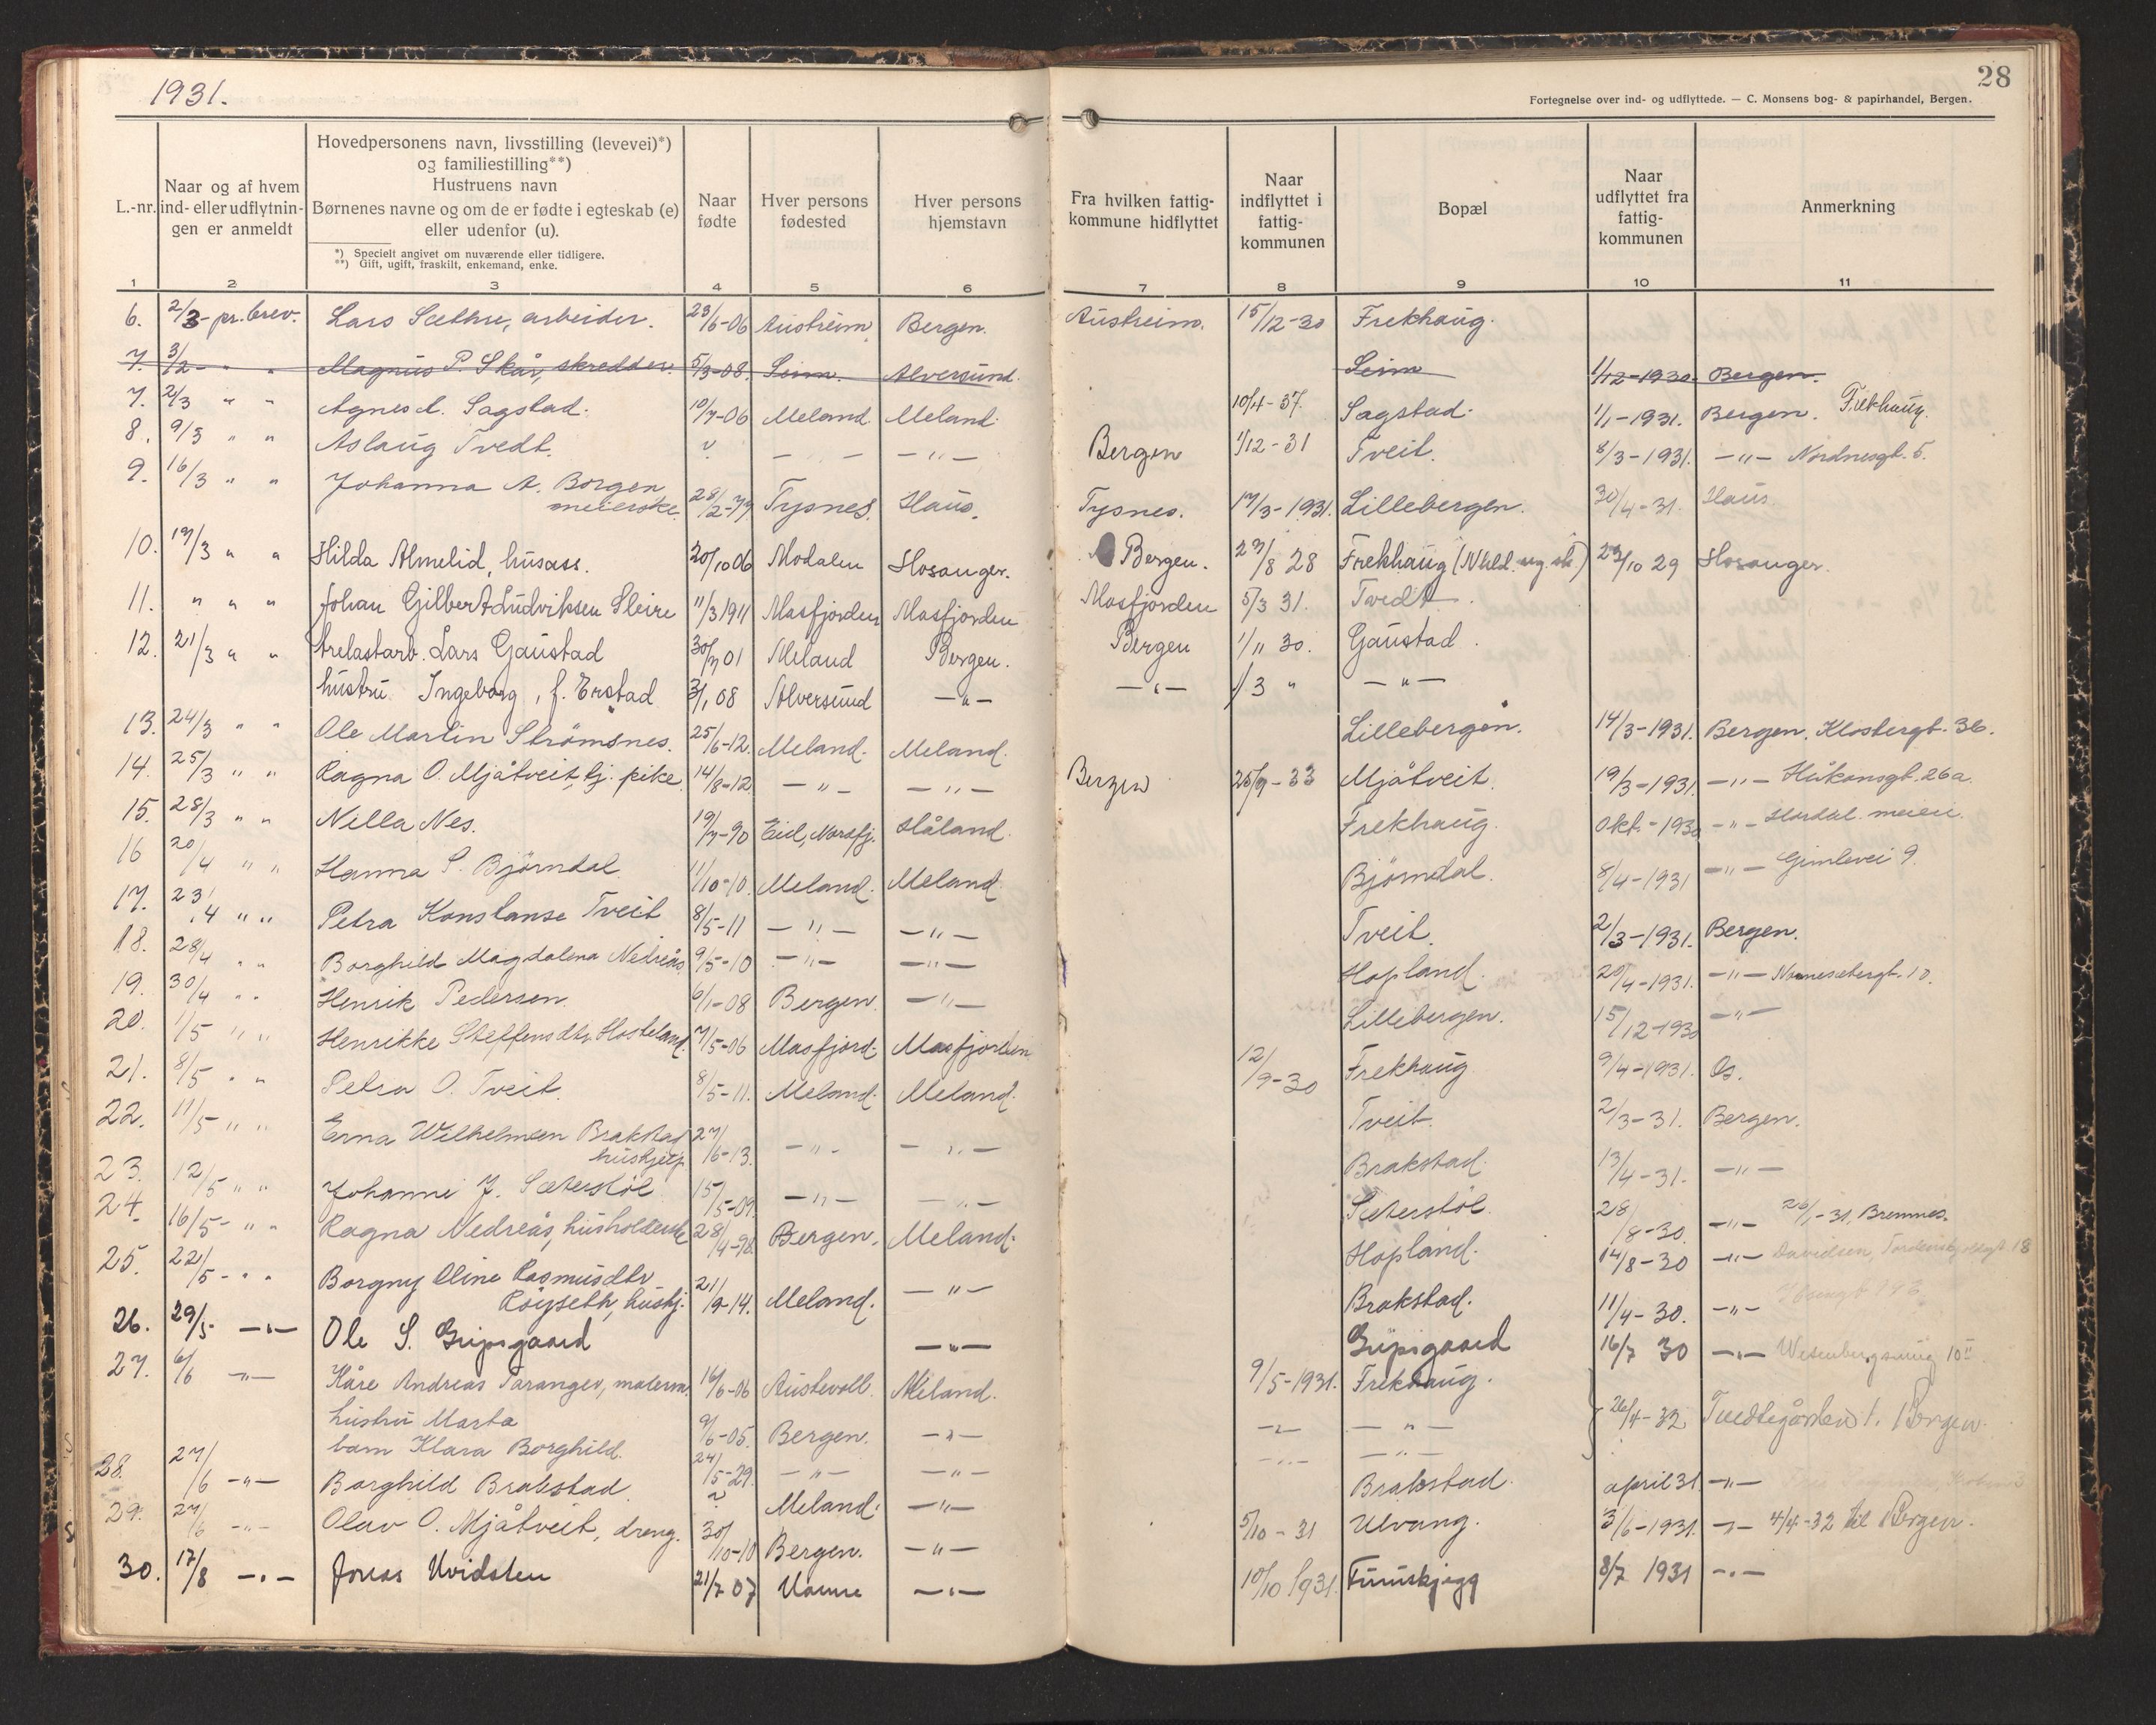 1931.
28
Fortegnelse over ind- og udflyttede. — C. Monsens bog- & papirhandel, Bergen.
L.-nr.
Naar og af hvem ind- eller udflytnin-gen er anmeldt
Hovedpersonens navn, livsstilling (levevei)*)
og familiestilling**)
Hustruens navn
Børnenes navne og om de er fødte i egteskab (e)
eller udenfor (u).
*) Specielt angivet om nuværende eller tidligere.
**) Gift, ugift, fraskilt, enkemand, enke.
Naar fødte
Hver persons fødested
Hver persons hjemstavn
Fra hvilken fattig-kommune hidflyttet
Naar indflyttet i fattig-kommunen
Bopæl
Naar udflyttet fra fattig-kommunen
Anmerkning
1 2 3 4 5 6 7 8 9 10 11
6. 2/3- pr. brev. Lars Sæthre, arbeider. 23/6-06 Austreim Bergen. Austreim. 15/12-30 Frekhaug.
7. 3/2- " " Magnus P. Skår, skredder. 5/3-08. Seim. Alversund. Seim 1/12-1930. Bergen.
7. 2/3 " " Agnes A. Sagstad. 10/7-06 Meland Meland. 10/4-37. Sagstad. 1/1-1931. Bergen. Frekhaug.
8. 9/3 " " Aslaug Tvedt. — " — — " — Bergen 1/12-31 Tveit. 8/3-1931. — " — Nordnesgt. 5.
9. 16/3 " " Johanna A. Borgen
meierske 28/2-79 Tysnes. Haus. Tysnes. 17/3-1931. Lillebergen. 30/4-31. Haus.
10. 19/3 " " Hilda Almelid, husass. 20/10 06 Modalen Hosanger. Bergen. 29/8 28 Frekhaug 23/10 29 Hosanger.
11. " " " Johan Gilbert Ludviksen Sleire 11/3 1911 Masfjorden Masfjorden Masfjorden 5/3 31. Tvedt.
12. 21/3 " " trelastarb. Lars Gaustad 30/7 01 Meland Bergen. Bergen 1/11 30. Gaustad.
hustru Ingeborg, f. Erstad 3/1 08 Alversund — " — — " — 1/3 " — " —
13. 24/3 " " Ole Martin Strømsnes. 25/6-12. Meland. Meland. Lillebergen. 14/3-1931. Bergen. Klostergt. 36.
14. 25/3 " " Ragna O. Mjåtveit, tj. pike. 14/8-12 — " — — " — Bergen 25/9-33 Mjåtveit. 19/3-1931. — " — Håkonsgt. 26a.
15. 28/3 " " Nilla Nes. 19/7-90 Eid, Norafj. Håland. Frekhaug. Okt.-1930 — " — Hordal. meieri.
16 20/4 " " Hanna S. Bjørndal. 11/10-10. Meland. Meland. Bjørndal. 8/4-1931 — " — Gimlevei 9.
17. 23/4 " " Petra Konstanse Tveit 8/5-11 — " — — " — Tveit. 2/3-1931. Bergen.
18. 28/4 " " Borghild Magdalena Nedreås. 9/5-10 — " — — " — Hopland. 20/4-1931. — " — Nonnesetergt. 10.
19. 30/4 " " Henrik Pedersen. 6/1-08 Bergen. — " — Lillebergen. 15/12-1930 — " —
20. 1/5 " " Henrikke Steffensdtr. Hosteland. 7/5-06 Masfjord. Masfjorden 12/9-30 Frekhaug 9/4-1931. Os.
21. 8/5 " " Petra O. Tveit. 8/5-11. Meland. Meland. Tveit. 2/3-31. Bergen.
22. 11/5 " " Erna Wilhelmsen Brakstad
hushjelp 27/6-13. — " — — " — Brakstad. 13/4-31. — " —
23. 12/5 " " Johanne J. Sæterstøl 15/5-09. — " — — " — Sæterstøl. 28/8-30. — " — 26/1-31. Bremnes.
24. 16/5- " " Ragna Nedreås, husholderske 28/4-98. Bergen. Meland. Hopland. 14/8-30 — " — Davidsen, Tordenskjoldsgt. 18
25. 22/5- " " Borgny Oline Rasmusdtr.
Røyseth, hushj. 21/9-14. Meland. — " — Brakstad. 11/4-30. — " —
26. 29/5 — " — Ole S. Gripsgaard — " — Gripsgaard 16/7 30 — " — Wesenbergsmug 10
27. 6/6 — " — Kåre Andreas Taranger, 16/6-06 Austevoll. Meland. 9/5-1931. Frekhaug.
hustru Marta 9/6-05. Bergen. — " — — " — — " — 26/4-32 Bergen.
barn Klara Borghild. 24/5-29. — " — — " — — " — — " —
28. 27/6 — " — Borghild Brakstad. Meland. — " — Brakstad. april 31 — " —
29. 27/6 — " — Olav O. Mjåtveit, dreng. 30/10-10 Bergen. — " — 5/10-31 Ulvang. 3/6-1931. — " — 4/4-32 til Bergen.
30. 17/8 — " — Jonas Kvidsten 21/7 07 — " — 10/10 1931. 8/7 1931 — " —